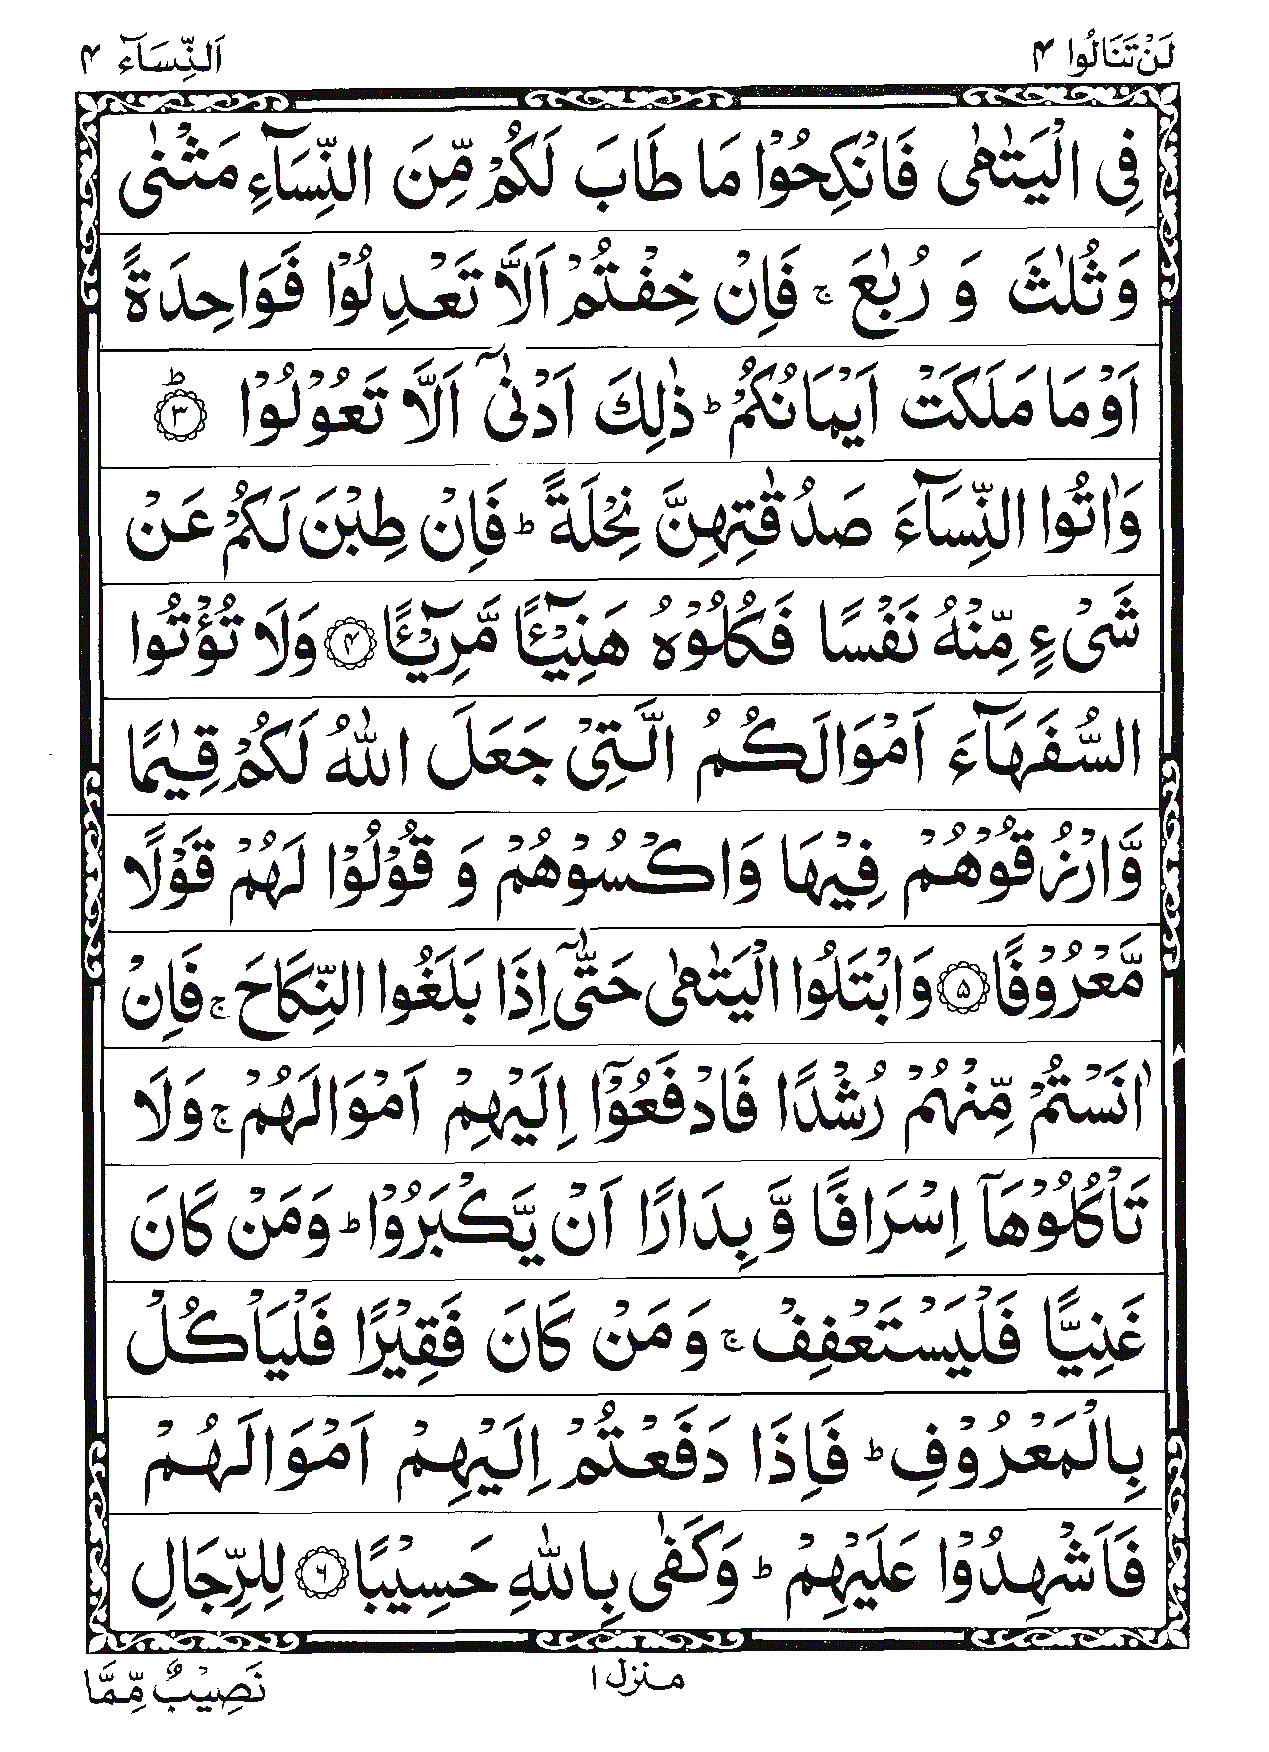 لَنْ تَنَالُوا ۴
اَلنِّسَآء ۴
فِی الْیَتٰمٰی فَانْكِحُوْا مَا طَابَ لَكُمْ مِّنَ النِّسَآءِ مَثْنٰی
وَثُلٰثَ وَ رُبٰعَ ۚ فَاِنْ خِفْتُمْ اَلَّا تَعْدِلُوْا فَوَاحِدَةً
اَوْ مَا مَلَكَتْ اَیْمَانُكُمْ ؕ ذٰلِكَ اَدْنٰۤی اَلَّا تَعُوْلُوْا ؕ ۳
وَاٰتُوا النِّسَآءَ صَدُقٰتِهِنَّ نِحْلَةً ؕ فَاِنْ طِبْنَ لَكُمْ عَنْ
شَیْءٍ مِّنْهُ نَفْسًا فَكُلُوْهُ هَنِیْٓئًا مَّرِیْٓئًا ۴ وَلَا تُؤْتُوا
السُّفَهَآءَ اَمْوَالَكُمُ الَّتِیْ جَعَلَ اللّٰهُ لَكُمْ قِیٰمًا
وَّارْزُقُوْهُمْ فِیْهَا وَاكْسُوْهُمْ وَ قُوْلُوْا لَهُمْ قَوْلًا
مَّعْرُوْفًا ۵ وَابْتَلُوا الْیَتٰمٰی حَتّٰۤی اِذَا بَلَغُوا النِّكَاحَ ۚ فَاِنْ
اٰنَسْتُمْ مِّنْهُمْ رُشْدًا فَادْفَعُوْۤا اِلَیْهِمْ اَمْوَالَهُمْ ۚ وَلَا
تَاْكُلُوْهَاۤ اِسْرَافًا وَّ بِدَارًا اَنْ یَّكْبَرُوْا ؕ وَمَنْ كَانَ
غَنِیًّا فَلْیَسْتَعْفِفْ ۚ وَ مَنْ كَانَ فَقِیْرًا فَلْیَاْكُلْ
بِالْمَعْرُوْفِ ؕ فَاِذَا دَفَعْتُمْ اِلَیْهِمْ اَمْوَالَهُمْ
فَاَشْهِدُوْا عَلَیْهِمْ ؕ وَكَفٰی بِاللّٰهِ حَسِیْبًا ۶ لِلرِّجَالِ
منزل ۱
نَصِیْبٌ مِّمَّا